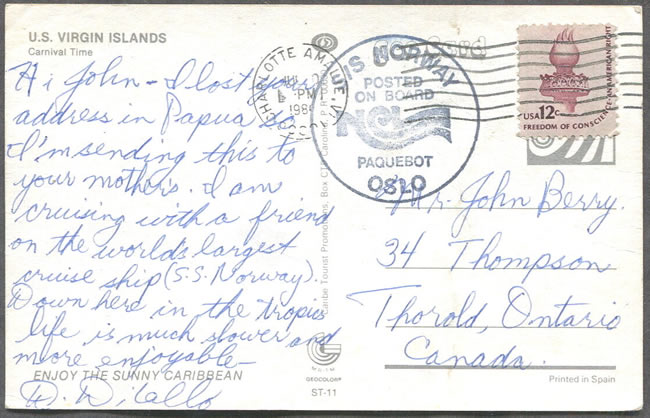 U.S. VIRGIN ISLANDS
Carnival Time
Hi John - I lost your
address in Papua so
I'm sending this to
your mothers. I am
cruising with a friend
on the world's largest
cruise ship (S.S. Norway).
Down here in the tropics
life is much slower and
more enjoyable-
D. DiCallo
ENJOY THE SUNNY CARIBBEAN
CHARLOTTE AMALIE, V.I.
PM
S/S NORWAY
POSTED
ON BOARD
NCL
PAQUEBOT
OSLO
USA 12c
FREEDOM OF CONSCIENCE-AN AMERICAN RIGHT
Mr. John Berry.
34 Thompson
Thorold, Ontario
Canada.
GEOCOLOR
ST-11
Printed in Spain